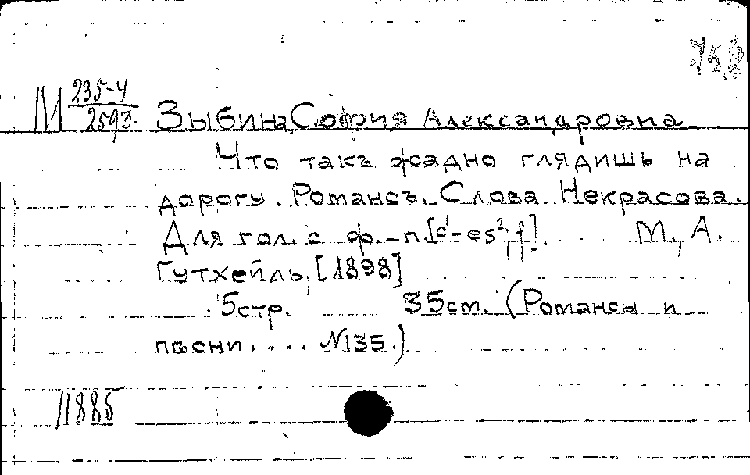 М 235-4
2593. Зыбина, София Александровна
Что такъ жадно глядишь на
дорогу. Романсъ. Слова Некрасова.
Для гол. с ф.-п. М., А.
Гутхейль, [1898]
5стр. 35см. (Романсы и
пѣсни.... №135.)